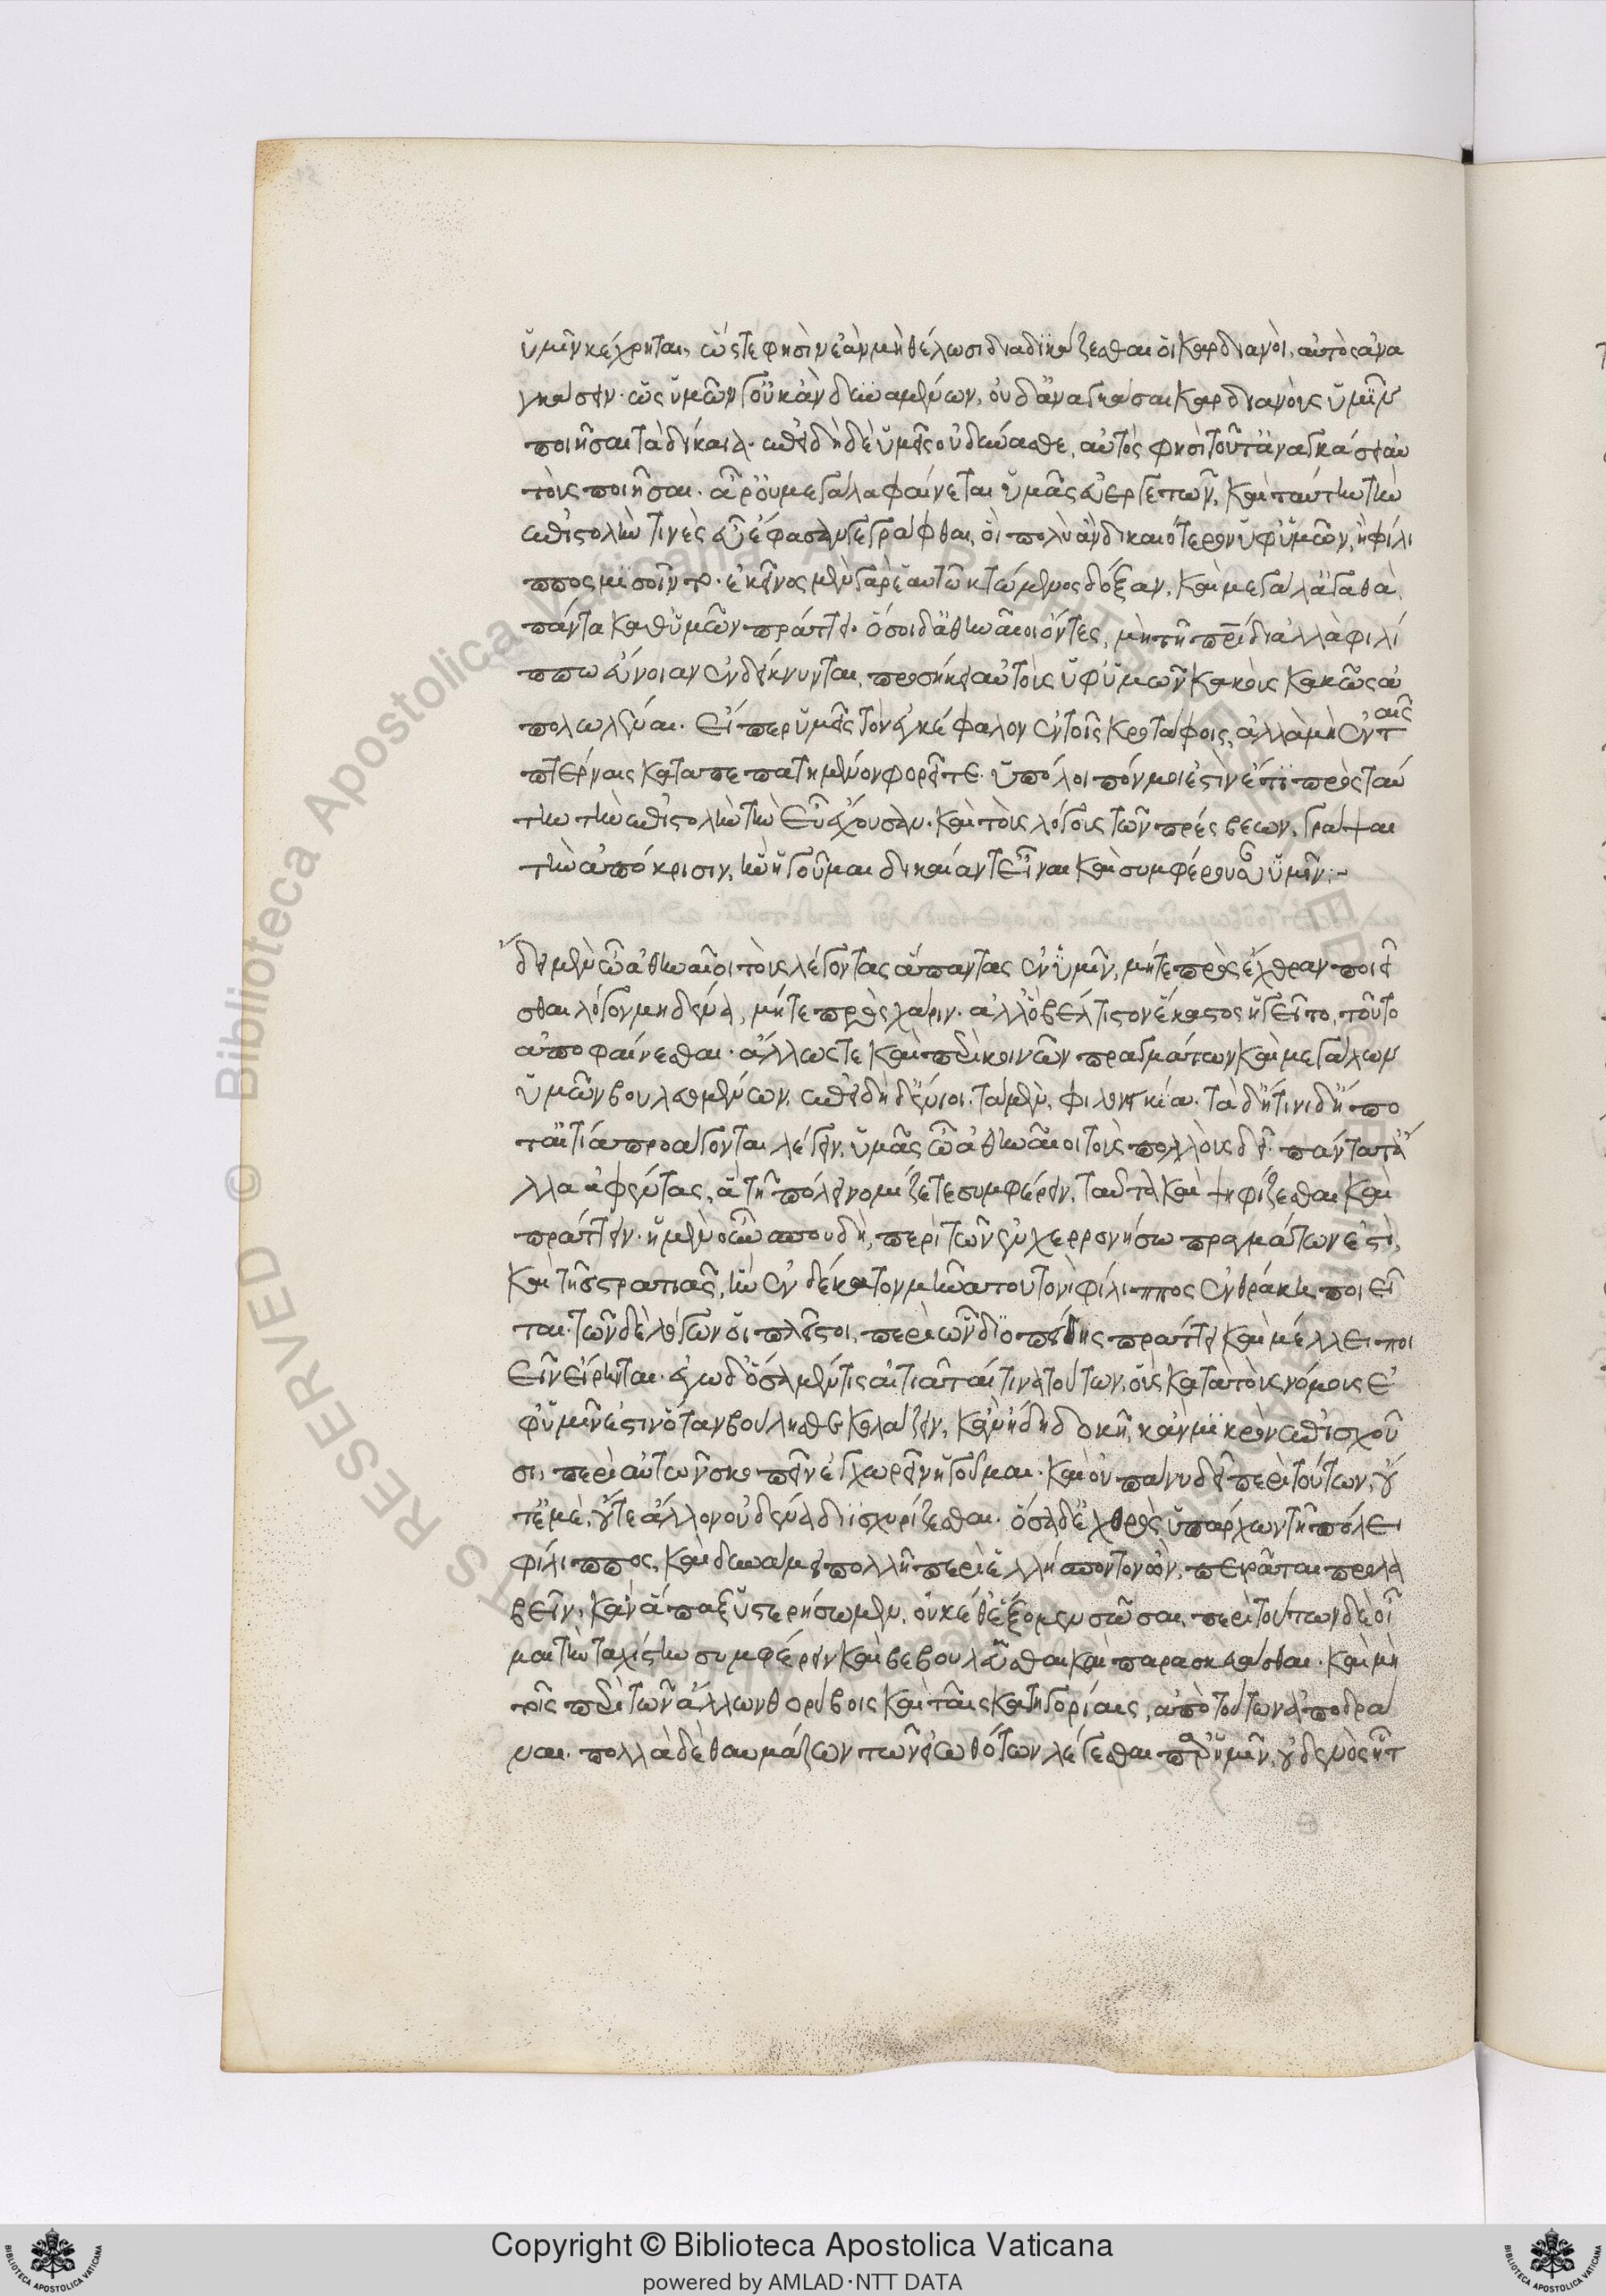 ὑμῖν κέχρηται, ὥστέ φησὶν ἐὰν μὴ θέλωσι διαδικάζεσθαι οἱ Καρδιανοὶ, αὐτὸς ἀνα
γκάσειν· ὡς ὑμῶν γ' οὐκ ἂν δυναμένων, οὐδ' ἀναγκάσαι Καρδιανοὺς ὑμῖν
ποιῆσαι τὰ δίκαια· ἐπειδὴ δὲ ὑμεῖς οὐ δύνασθε, αὐτός φησὶ τοῦτ' ἀναγκάσειν αὐ
τοὺς ποιῆσαι. ἆρ' οὐ μεγάλα φαίνεται ὑμᾶς εὐεργετῶν, καὶ ταύτην τὴν
ἐπιστολὴν τινὲς εὖ ἔφασαν γεγράφθαι, οἳ πολὺ ἂν δικαιότερον ὑφ' ὑμῶν, ἢ φίλι
ππος μισοῖντο. ἐκεῖνος μὲν γὰρ ἑαυτῷ κτώμενος δόξαν, καὶ μεγάλα ἀγαθὰ
πάντα καθ' ὑμῶν πράττει. ὅσοι δ' ἀθηναῖοι ὄντες, μὴ τῇ πατρίδι ἀλλὰ φιλί
ππῳ εὔνοιαν ἐνδείκνυνται, προσήκει αὐτοὺς ὑφ' ὑμῶν κακοὺς κακῶς ἀ
πολωλέναι. εἴπερ ὑμεῖς τὸν ἐγκέφαλον ἐν τοῖς κροτάφοις, ἀλλὰ μὴ ἐν ταῖς
πτέρναις καταπεπατημένον φορεῖτε. ὑπόλοιπόν μοι ἐστὶν ἔτι πρὸς ταύ
την τὴν ἐπιστολὴν τὴν εὖ ἔχουσαν. καὶ τοὺς λόγους τῶν πρέσβεων, γράψαι
τὴν ἀπόκρισιν, ἣν ἡγοῦμαι δικαίαν τ' εἶναι καὶ συμφέρουσαν ὑμῖν:~
δει μὲν ὦ ἀθηναῖοι τοὺς λέγοντας ἅπαντας ἐν ὑμῖν, μήτε πρὸς ἔχθραν ποιεῖ
σθαι λόγον μηδένα, μήτε πρὸς χάριν· ἀλλ' ὃ βέλτιστον ἕκαστος ἡγεῖτο, τοῦτο
ἀποφαίνεσθαι· ἄλλως τε καὶ περὶ κοινῶν πραγμάτων καὶ μεγάλων
ὑμῶν βουλευομένων. ἐπειδὴ δ' ἔνιοι· τὰ μὲν, φιλονεικία· τὰ δ' ᾗτινι δή πο
τ' αἰτίᾳ προάγονται λέγειν, ὑμᾶς ὦ ἀθηναῖοι τοὺς πολλοὺς δεῖ πάντα τἆ
λλα ἀφέντας, ἃ τῇ πόλει νομίζετε συμφέρειν, ταῦτα καὶ ψηφίζεσθαι καὶ
πράττειν. ἡ μὲν οὖν σπουδὴ, περὶ τῶν ἐν χερρονήσῳ πραγμάτων ἐστὶ,
καὶ τῆς στρατιᾶς, ἣν ἐνδέκατον μῆνα τουτονὶ φίλιππος ἐν θρᾴκῃ ποιεῖ
ται. τῶν δὲ λόγων οἱ πλεῖστοι, περὶ ὧν διοπείθης πράττει καὶ μέλλει ποι
εῖν εἴρηνται. ἐγὼ δ' ὅσα μέν τις αἰτιᾶταί τινα τούτων, οὓς κατὰ τοὺς νόμους ἐ
φ' ὑμῖν ἐστὶν ὅταν βούλησθε κολάζειν, κἂν ἤδη δοκῇ, κἂν μικρὸν ἐπισχοῦ
σι, περὶ αὐτῶν σκοπεῖν ἐγχωρεῖν ἡγοῦμαι. καὶ οὐ πάνυ δεῖ περὶ τούτων, οὔ
τ' ἐμὲ, οὔτε ἄλλον οὐδένα διϊσχυρίζεσθαι. ὅσα δ' ἐχθρὸς ὑπάρχων τῇ πόλει
φίλιππος, καὶ δυνάμει πολλῇ περὶ ἑλλήσποντον ὢν, πειρᾶται προλα
βεῖν, κἂν ἅπαξ ὑστερήσωμεν, οὐκέθ' ἕξομεν σῶσαι. περὶ τούτων δὲ οἶ
μαι τὴν ταχίστην συμφέρειν καὶ βεβουλεῦσθαι καὶ παρασκευάσθαι. καὶ μὴ
τοῖς περὶ τῶν ἄλλων θορύβοις καὶ ταῖς κατηγορίαις, ἀπὸ τούτων ἀποδρα
ναι. πολλὰ δὲ θαυμάζων τῶν εἰωθότων λέγεσθαι παρ' ὑμῖν, οὐδενὸς ἧττ